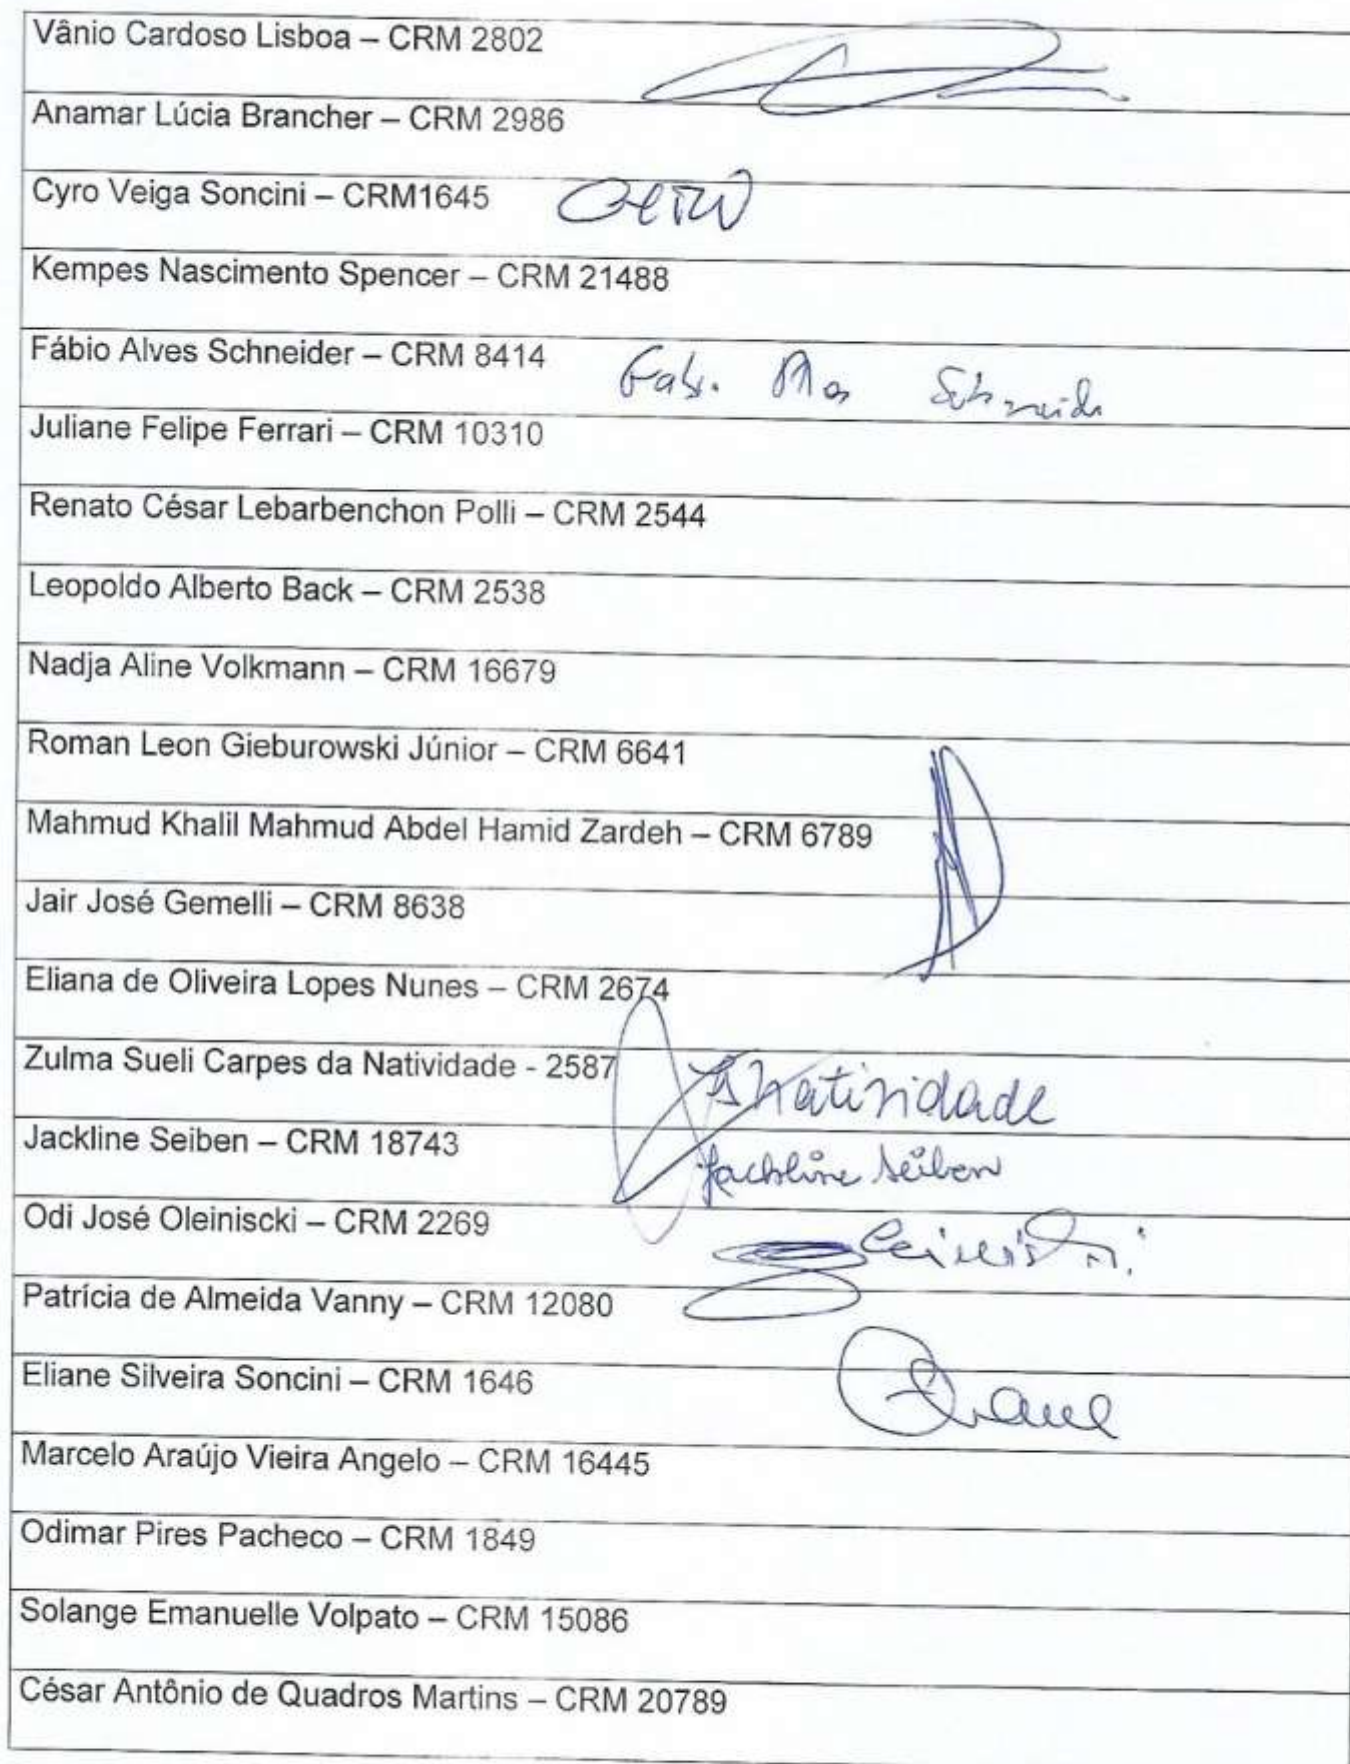 Vânio Cardoso Lisboa – CRM 2802
Anamar Lúcia Brancher – CRM 2986
Cyro Veiga Soncini – CRM1645
Kempes Nascimento Spencer – CRM 21488
Fábio Alves Schneider – CRM 8414
Juliane Felipe Ferrari – CRM 10310
Renato César Lebarbenchon Polli – CRM 2544
Leopoldo Alberto Back – CRM 2538
Nadja Aline Volkmann – CRM 16679
Roman Leon Gieburowski Júnior – CRM 6641
Mahmud Khalil Mahmud Abdel Hamid Zardeh – CRM 6789
Jair José Gemelli – CRM 8638
Eliana de Oliveira Lopes Nunes – CRM 2674
Zulma Sueli Carpes da Natividade - 2587 Natividade
Jackline Seiben – CRM 18743 Jackline Seiben
Odi José Oleiniscki – CRM 2269
Patrícia de Almeida Vanny – CRM 12080
Eliane Silveira Soncini – CRM 1646
Marcelo Araújo Vieira Angelo – CRM 16445
Odimar Pires Pacheco – CRM 1849
Solange Emanuelle Volpato – CRM 15086
César Antônio de Quadros Martins – CRM 20789